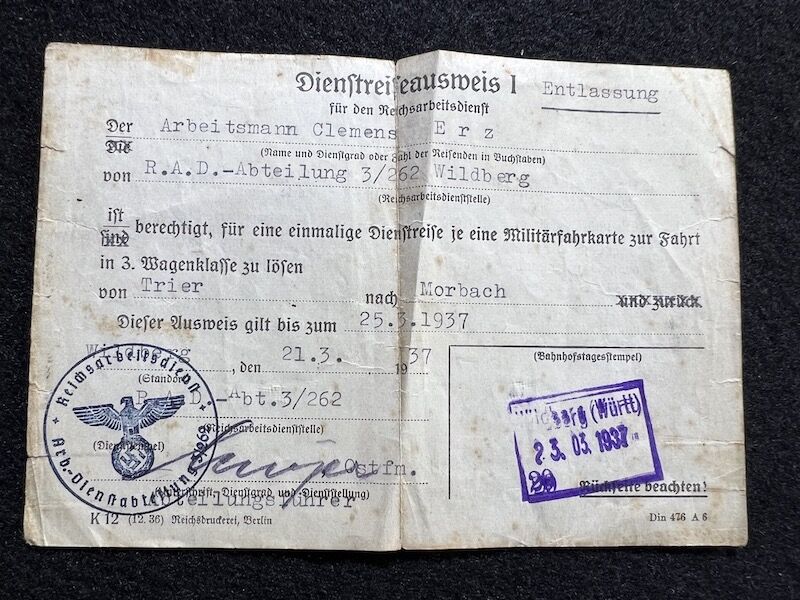 Dienstreiseausweis I Entlassung
für den Reichsarbeitsdienst
Der Arbeitsmann Clemens Erz
Die
(Name und Dienstgrad oder Zahl der Reisenden in Buchstaben)
von R.A.D.-Abteilung 3/262 Wildberg
(Reichsarbeitsdienststelle)
ist
sind berechtigt, für eine einmalige Dienstreise je eine Militärfahrkarte zur Fahrt
in 3. Wagenklasse zu lösen
von Trier nach Morbach und zurück.
Dieser Ausweis gilt bis zum 25.3.1937
Wildberg, den 21.3. 1937
(Standort)
(Bahnhofstagesstempel)
R.A.D.-Abt.3/262
(Reichsarbeitsdienststelle)
(Dienststempel)
Reichsarbeitsdienst
Arb.-Dienstabteilung 3/262
Wildberg (Württ)
23.03.1937
20
Ostfm.
(Unterschrift, Dienstgrad und Dienststellung)
Abteilungsführer
Rückseite beachten!
K 12 (12. 36) Reichsdruckerei, Berlin
Din 476 A 6